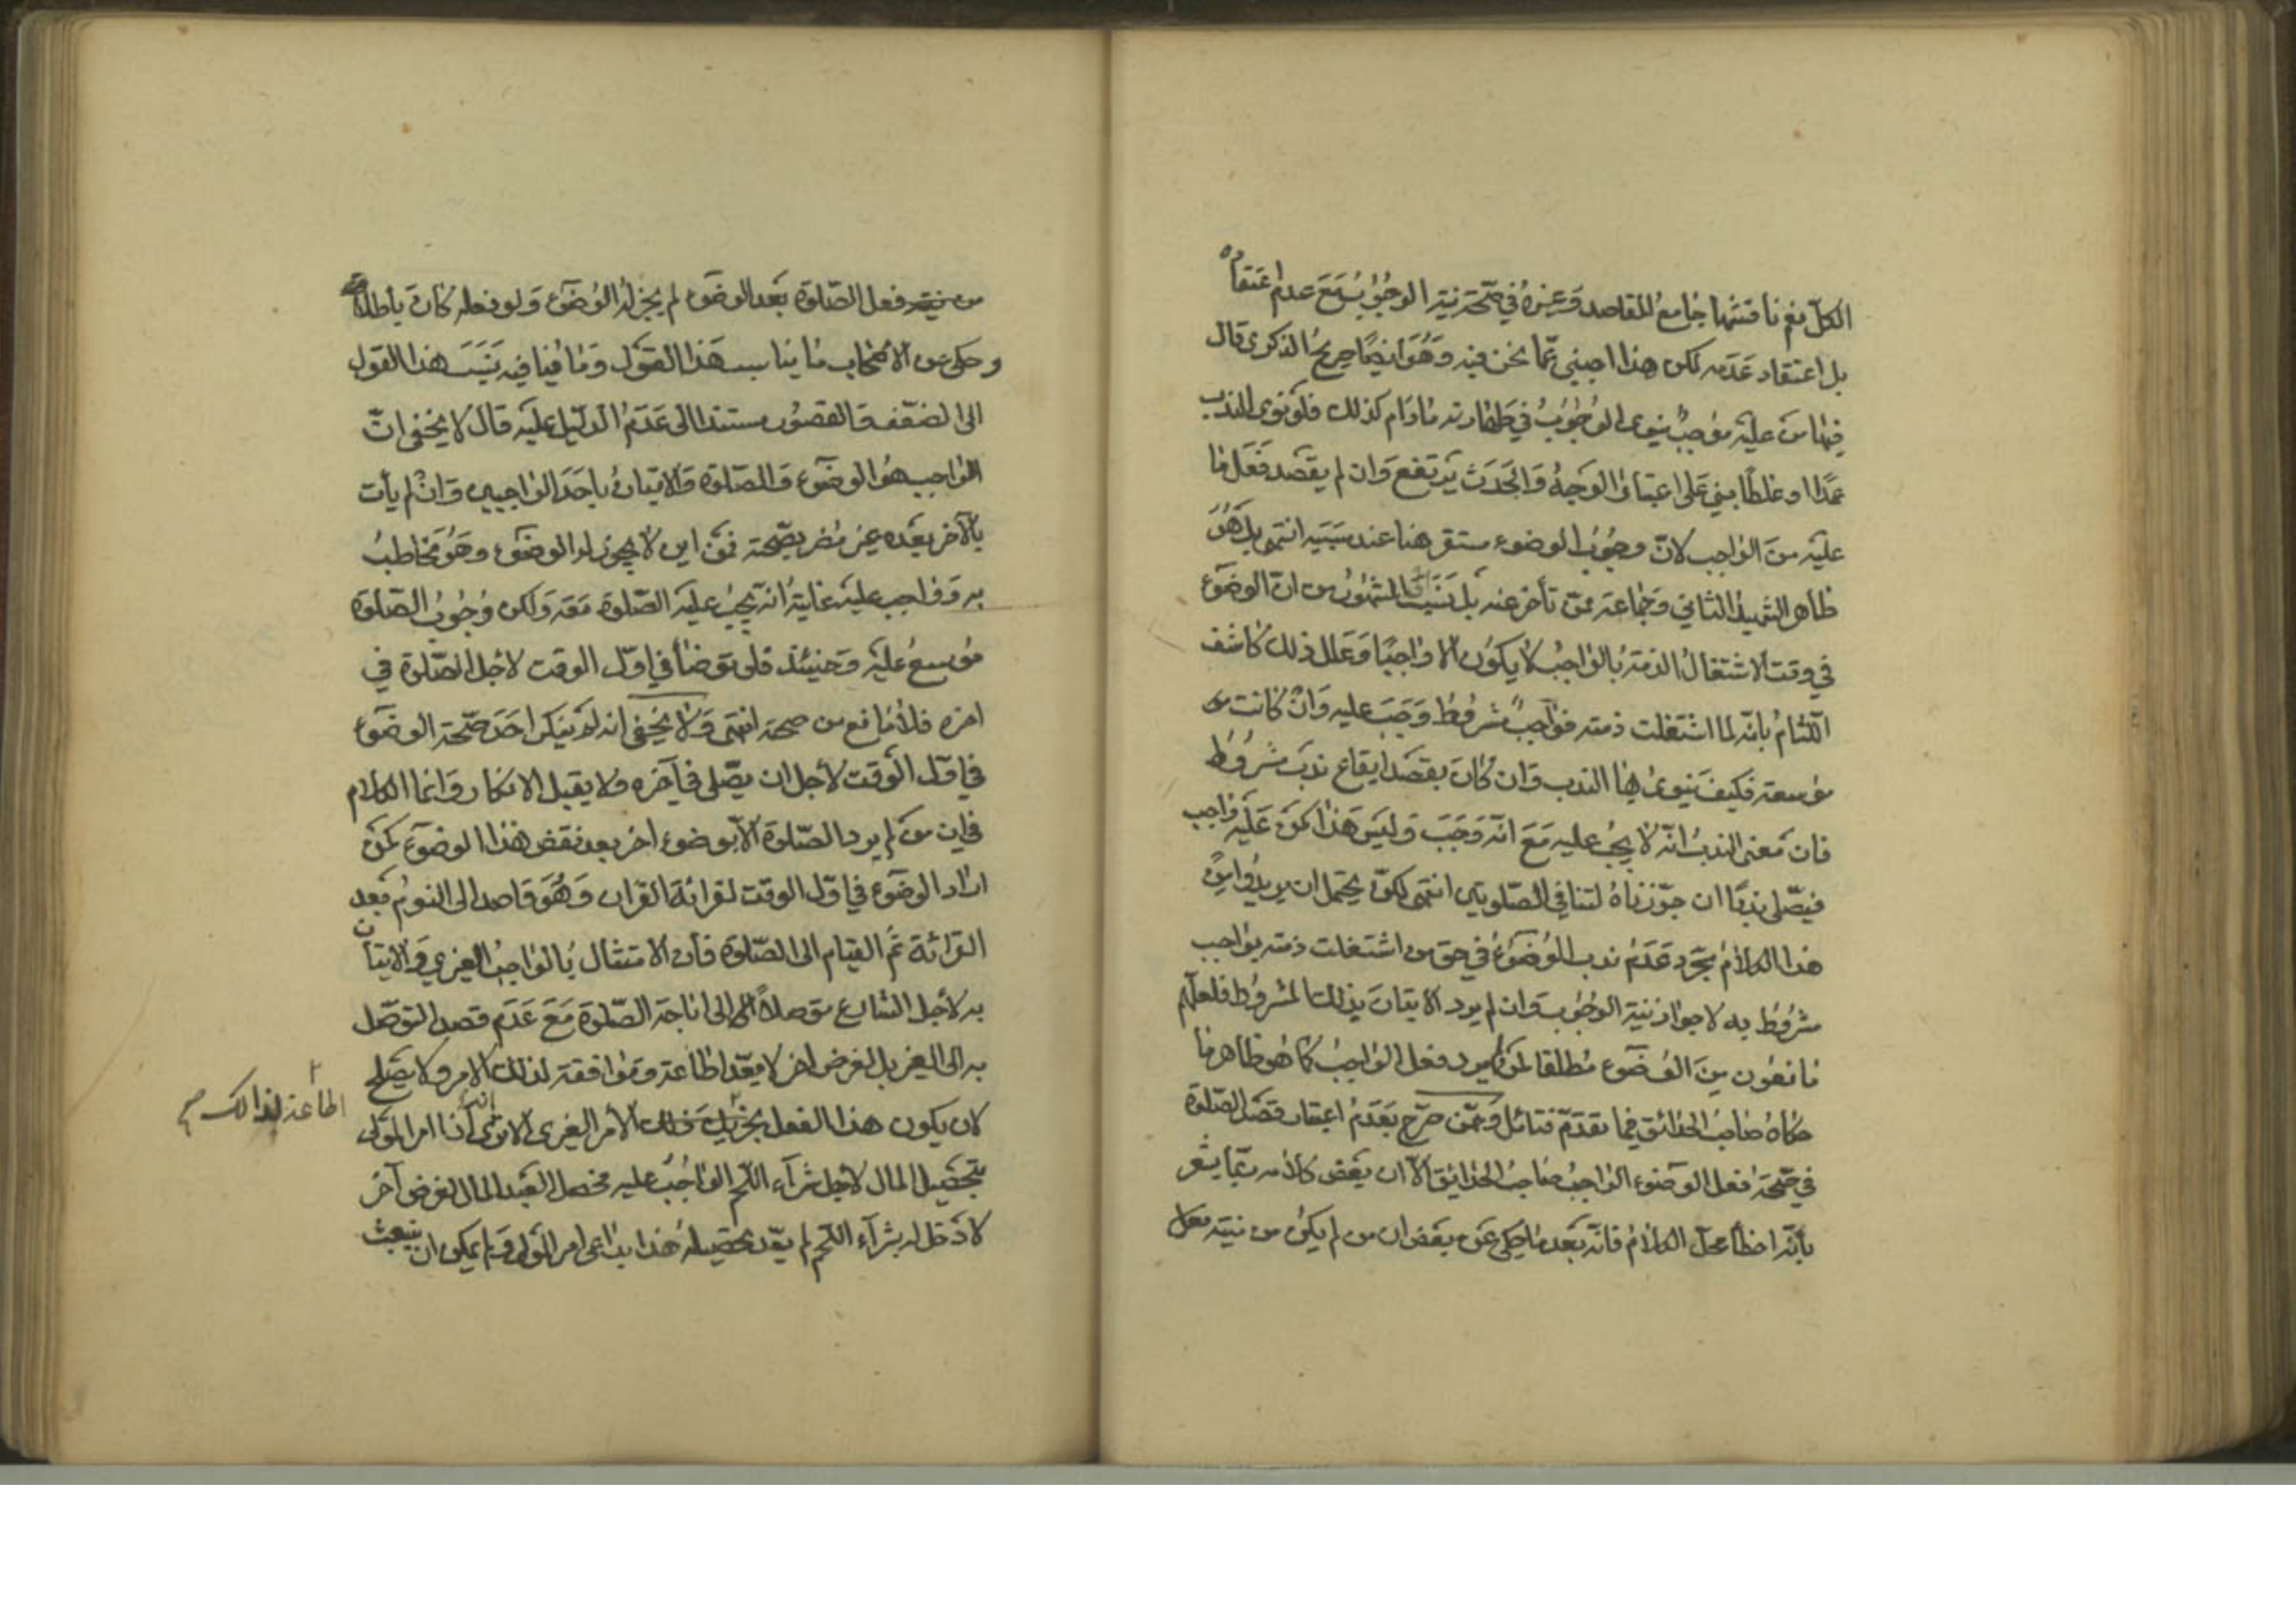 الكلّ نعم ناقشها جامع المقاصد وغيره في صحّة نيّة الوجوب مع عدم اعتقاده
بل اعتقاد عدمه لكن هذا اجنبي عمّا نحن فيه وهو ايضا صريح الذكرى قال
فيها من عليه موجب ينوى الوجوب في طهارته مادام كذلك فلو نوى الندب
عمدا او غلطا بني على اعتبار الوجه والحدث يرتفع وان لم يقصد فعل ما
عليه من الواجب لانّ وجوب الوضوء مستقر هنا عند سببه انتهى بل هو
ظاهر الشهيد الثاني وجماعة ممّن تأخر عنه بل نسب الى المشهور من انّ الوضوء
في وقت الاشتغال الذمة بالواجب لا يكون الا واجبا وعلل ذلك كاشف
اللثام بانّه لما اشتغلت ذمته فواجب مشروط وجب عليه وان كانت
موسعة فكيف ينوى بها الندب وان كان بقصد ايقاع ندب مشروط
فان معنى الندب انّه لا يجب عليه مع انّه وجب وليس هذا كمن عليه واجب
فيصّلى ندبا ان جوّزناه لتنافي الصّلوتين انتهى لكن يحتمل ان يريدوا من
هذا الكلام مجرّد عدم ندب الوضوء في حق من اشتغلت ذمته بواجب
مشروط به لا جواز نية الوجوب وان لم يرد الاتيان بذلك المشروط فلعلّهم
مانعون من الوضوء مطلقا لمن لم يرد فعل الواجب كما هو ظاهر ما
حكاه صاحب الحدائق فيما تقدّم فتأمّل وممّن صرّح بعدم اعتبار قصد الصّلوة
في صحّة فعل الوضوء الواجب صاحب الحدائق الّا ان بعض كلامه ربّما يشعر
بأنّه اخطأ محلّ الكلام فانّه بعد ما حكى عن بعض ان من لم يكن من نيته فعل
من نيته فعل الصّلوة بعد الوضوء لم يجز له الوضوء ولو فعله كان باطلا
وحكى عن الاصحاب ما يناسب هذا القول وما ينافيه نسب هذا القول
الى الضعف والقصور مستندا الى عدم الدّليل عليه قال لا يخفى انّ
الواجب هو الوضوء والصّلوة والاتيان باحد الواجبين وان لم يأت
بالآخر بعده غير مضر بصحّته فمن اين لا يجوز له الوضوء وهو مخاطب
به وواجب عليه غاية انّه يجب عليه الصّلوة معه ولكن وجوب الصّلوة
موسع عليه وحينئذ فلو توضأ في اوّل الوقت لاجل الصّلوة في
اخره فلا مانع من صحته انتهى ولا يخفى انه لم ينكر احد صحّة الوضوء
في اوّل الوقت لأجل ان يصّلى في آخره ولا يقبل الانكار وانما الكلام
في ان من لم يرد الصّلوة الّا بوضوء اخر بعد نقض هذا الوضوء كمن
اراد الوضوء في اوّل الوقت لقرائة القران وهو قاصد الى النوم بعد
القرائة ثم القيام الى الصّلوة فأن الامتثال بالواجب الغيري والاتيان
به لأجل الشارع متوصلا الى اباحة الصّلوة مع عدم قصد التوصّل
به الى الغير بل لغرض اخر لا يعّد اطاعة وموافقة لذلك الامر ولا يصلح
لان يكون هذا الفعل الأمر الغيري الا ترى أنه اذا امر المولى
بتحصيل المال لاجل شرآء اللّحم الواجب عليه فحصل العبد المال لغرض آخر
لا دخل له بشرآء اللّحم لم يعّد تحصيله هذا بداعى امر المولى ولم يمكن ان ينبعث
اطاعة لذالك